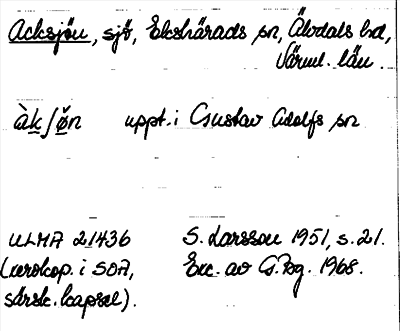 Acksjön, sjö, Ekshärads sn, Älvdals hd,
Värml. län.
àkʃø̌n uppt. i Gustav Adolfs sn
ULMA 21436 S. Larsson 1951, s. 21.
(xerokop. i SOA, Exc. av G.Bg. 1968.
särsk. kapsel).